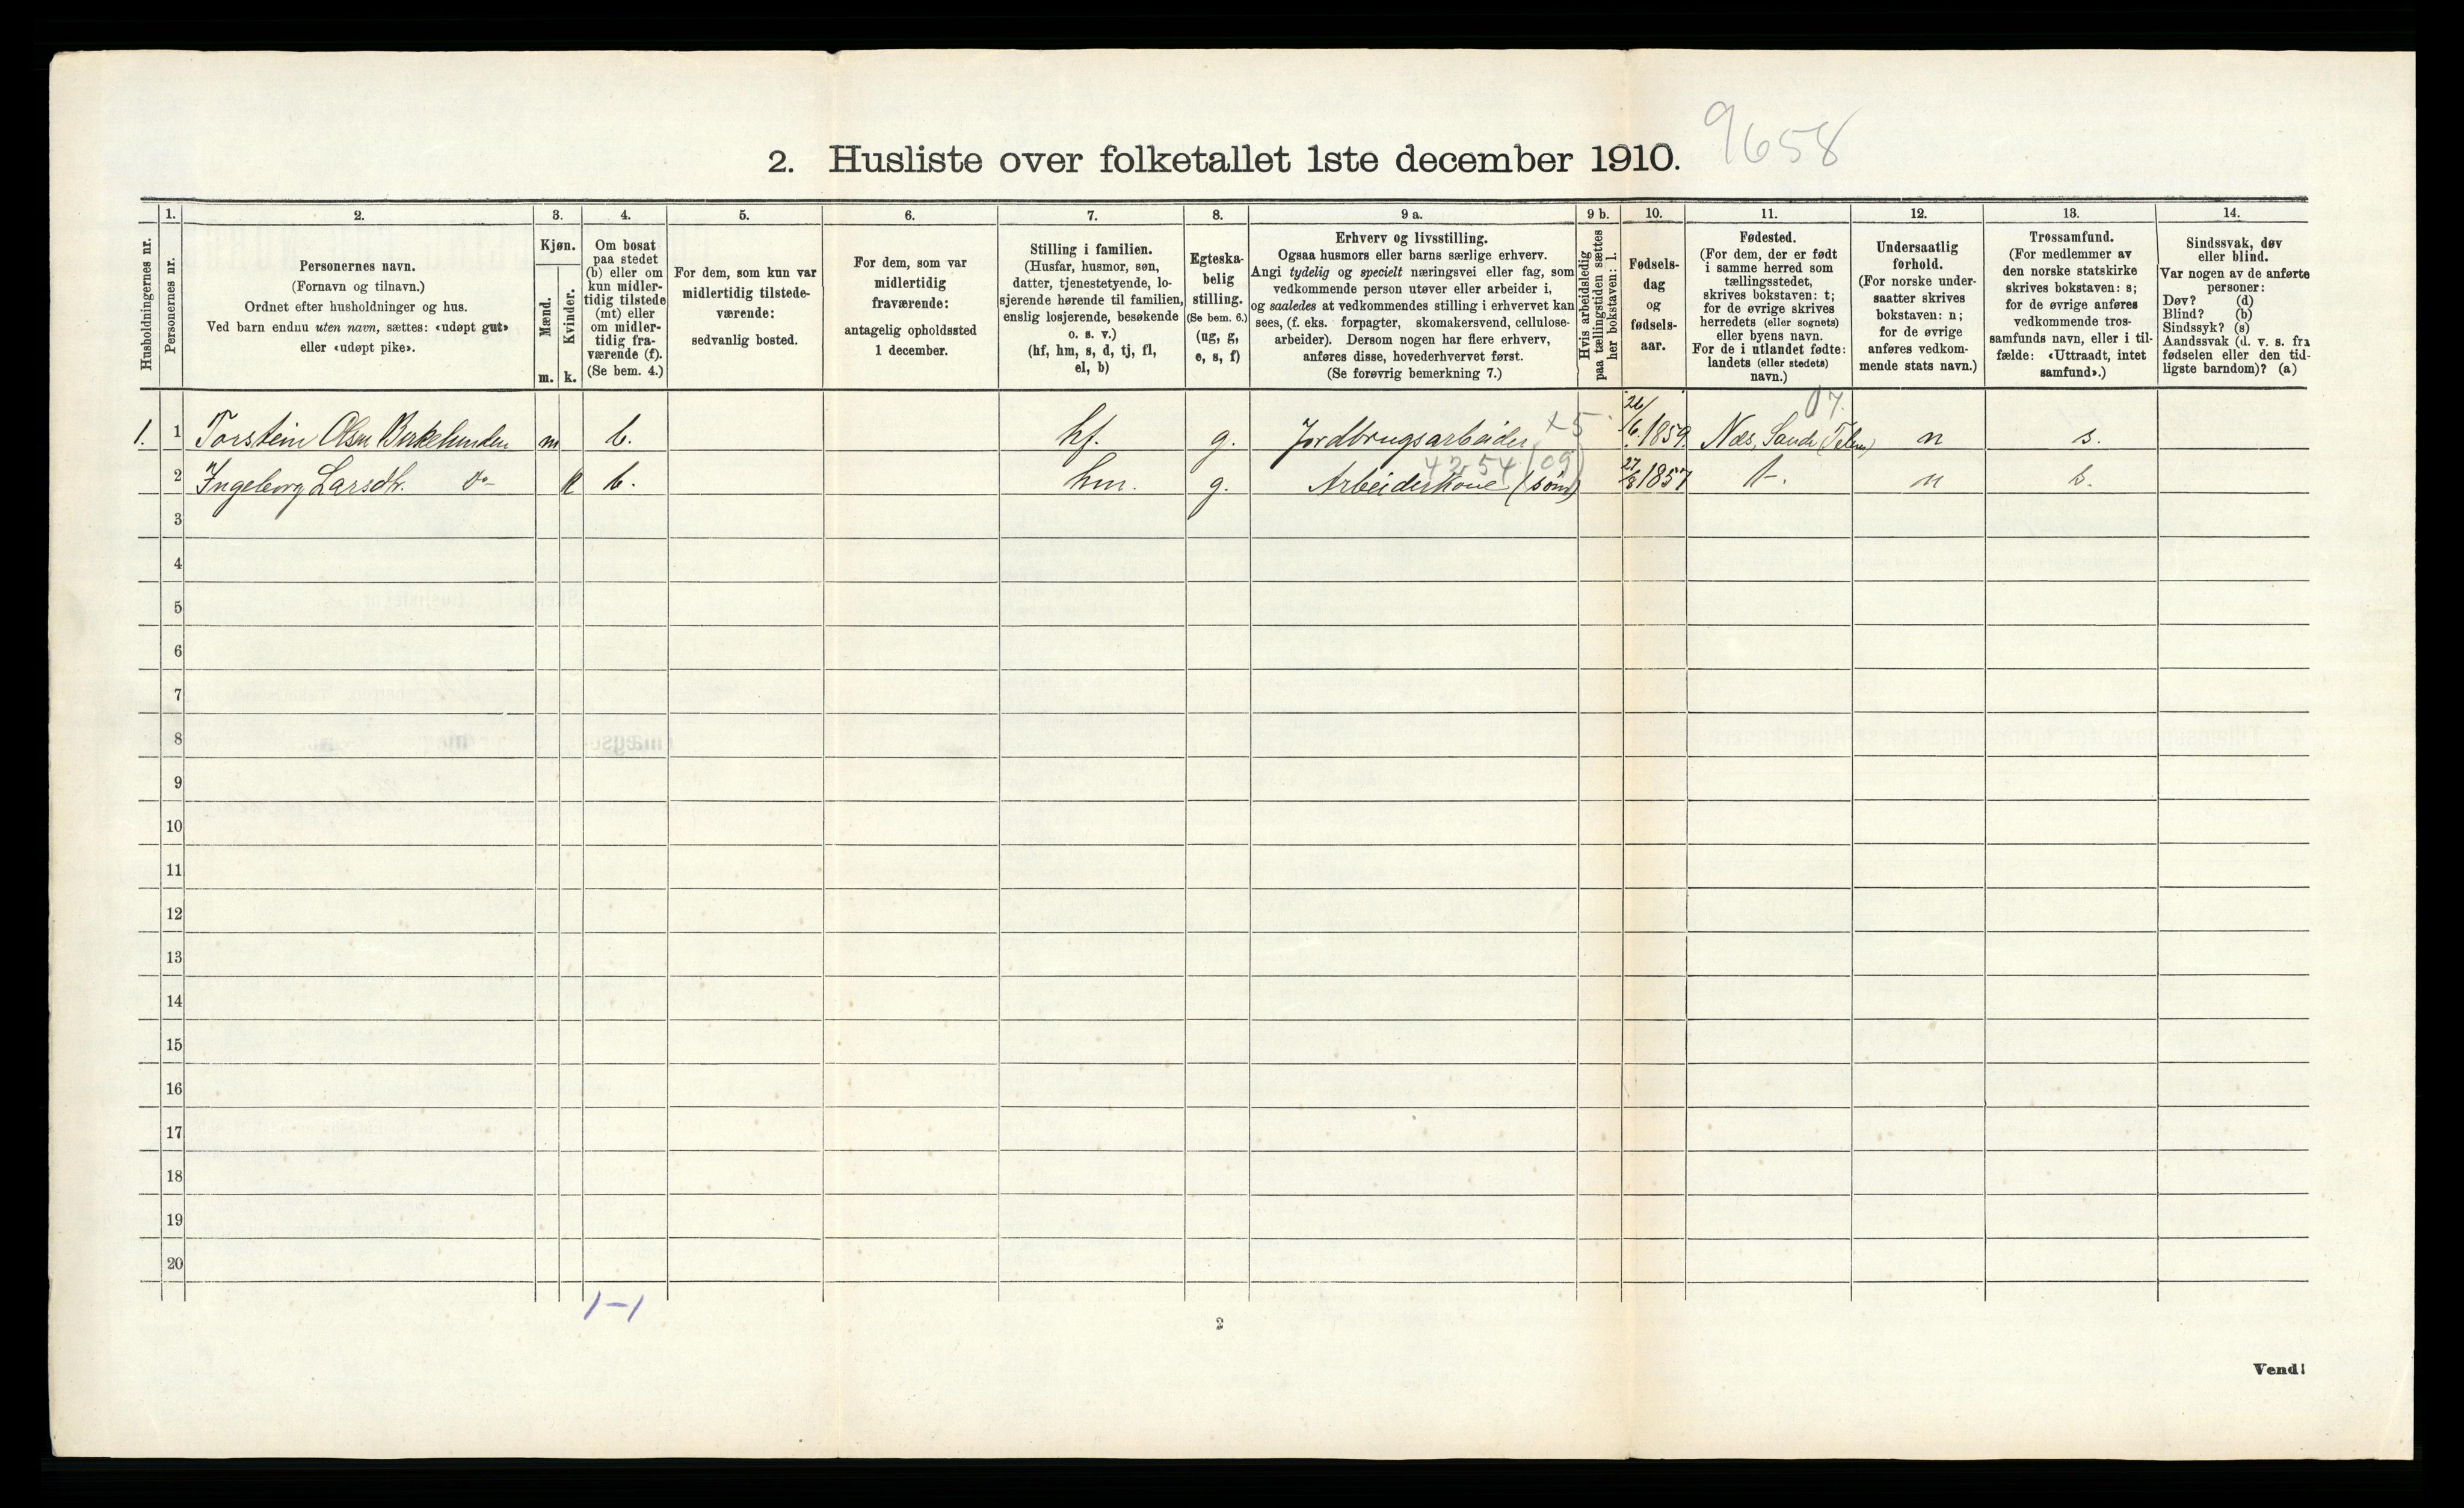 9658
2. Husliste over folketallet 1ste december 1910.
Husholdningernes nr.
1.
Personernes nr.
2.
Personernes navn.
(Fornavn og tilnavn.)
Ordnet efter husholdninger og hus.
Ved barn endnu uten navn, sættes: «udøpt gut»
eller «udøpt pike».
3.
Kjøn.
Mænd.
m.
Kvinder.
k.
4.
Om bosat
paa stedet
(b) eller om
kun midler-
tidig tilstede
(mt) eller
om midler-
tidig fra-
værende (f).
(Se bem. 4.)
5.
For dem, som kun var
midlertidig tilstede-
værende:
sedvanlig bosted.
6.
For dem, som var
midlertidig
fraværende:
antagelig opholdssted
1 december.
7.
Stilling i familien.
(Husfar, husmor, søn,
datter, tjenestetyende, lo-
sjerende hørende til familien,
enslig losjerende, besøkende
o. s. v.)
(hf, hm, s, d, tj, fl,
el, b)
8.
Egteska-
belig
stilling.
(Se bem. 6.)
(ug, g,
e, s, f)
9 a.
Erhverv og livsstilling.
Ogsaa husmors eller barns særlige erhverv.
Angi tydelig og specielt næringsvei eller fag, som
vedkommende person utøver eller arbeider i,
og saaledes at vedkommendes stilling i erhvervet kan
sees, (f. eks. forpagter, skomakersvend, cellulose-
arbeider). Dersom nogen har flere erhverv,
anføres disse, hovederhvervet først.
(Se forøvrig bemerkning 7.)
9 b.
Hvis arbeidsledig
paa tællingstiden sættes
her bokstaven: l.
10.
Fødsels-
dag
og
fødsels-
aar.
11.
Fødested.
(For dem, der er født
i samme herred som
tællingsstedet,
skrives bokstaven: t;
for de øvrige skrives
herredets (eller sognets)
eller byens navn.
For de i utlandet fødte:
landets (eller stedets)
navn.)
12.
Undersaatlig
forhold.
(For norske under-
saatter skrives
bokstaven: n;
for de øvrige
anføres vedkom-
mende stats navn.)
13.
Trossamfund.
(For medlemmer av
den norske statskirke
skrives bokstaven: s;
for de øvrige anføres
vedkommende tros-
samfunds navn, eller i til-
fælde: «Uttraadt, intet
samfund».)
14.
Sindssvak, døv
eller blind.
Var nogen av de anførte
personer:
Døv? (d)
Blind? (b)
Sindssyk? (s)
Aandssvak (d. v. s. fra
fødselen eller den tid-
ligste barndom)? (a)
07.
1. 1 Torstein Olsen Birkelunden m b. hf. g. Jordbrugsarbeider x5 26/6 1859. Næs, Saude (Telem) n s.
4254 (09)
2 Ingeborg Larsdtr. do k b. hm. g. Arbeiderkone (søm) 27/8 1857 t. n s.
3
4
5
6
7
8
9
10
11
12
13
14
15
16
17
18
19
20
1-1
2
Vend!